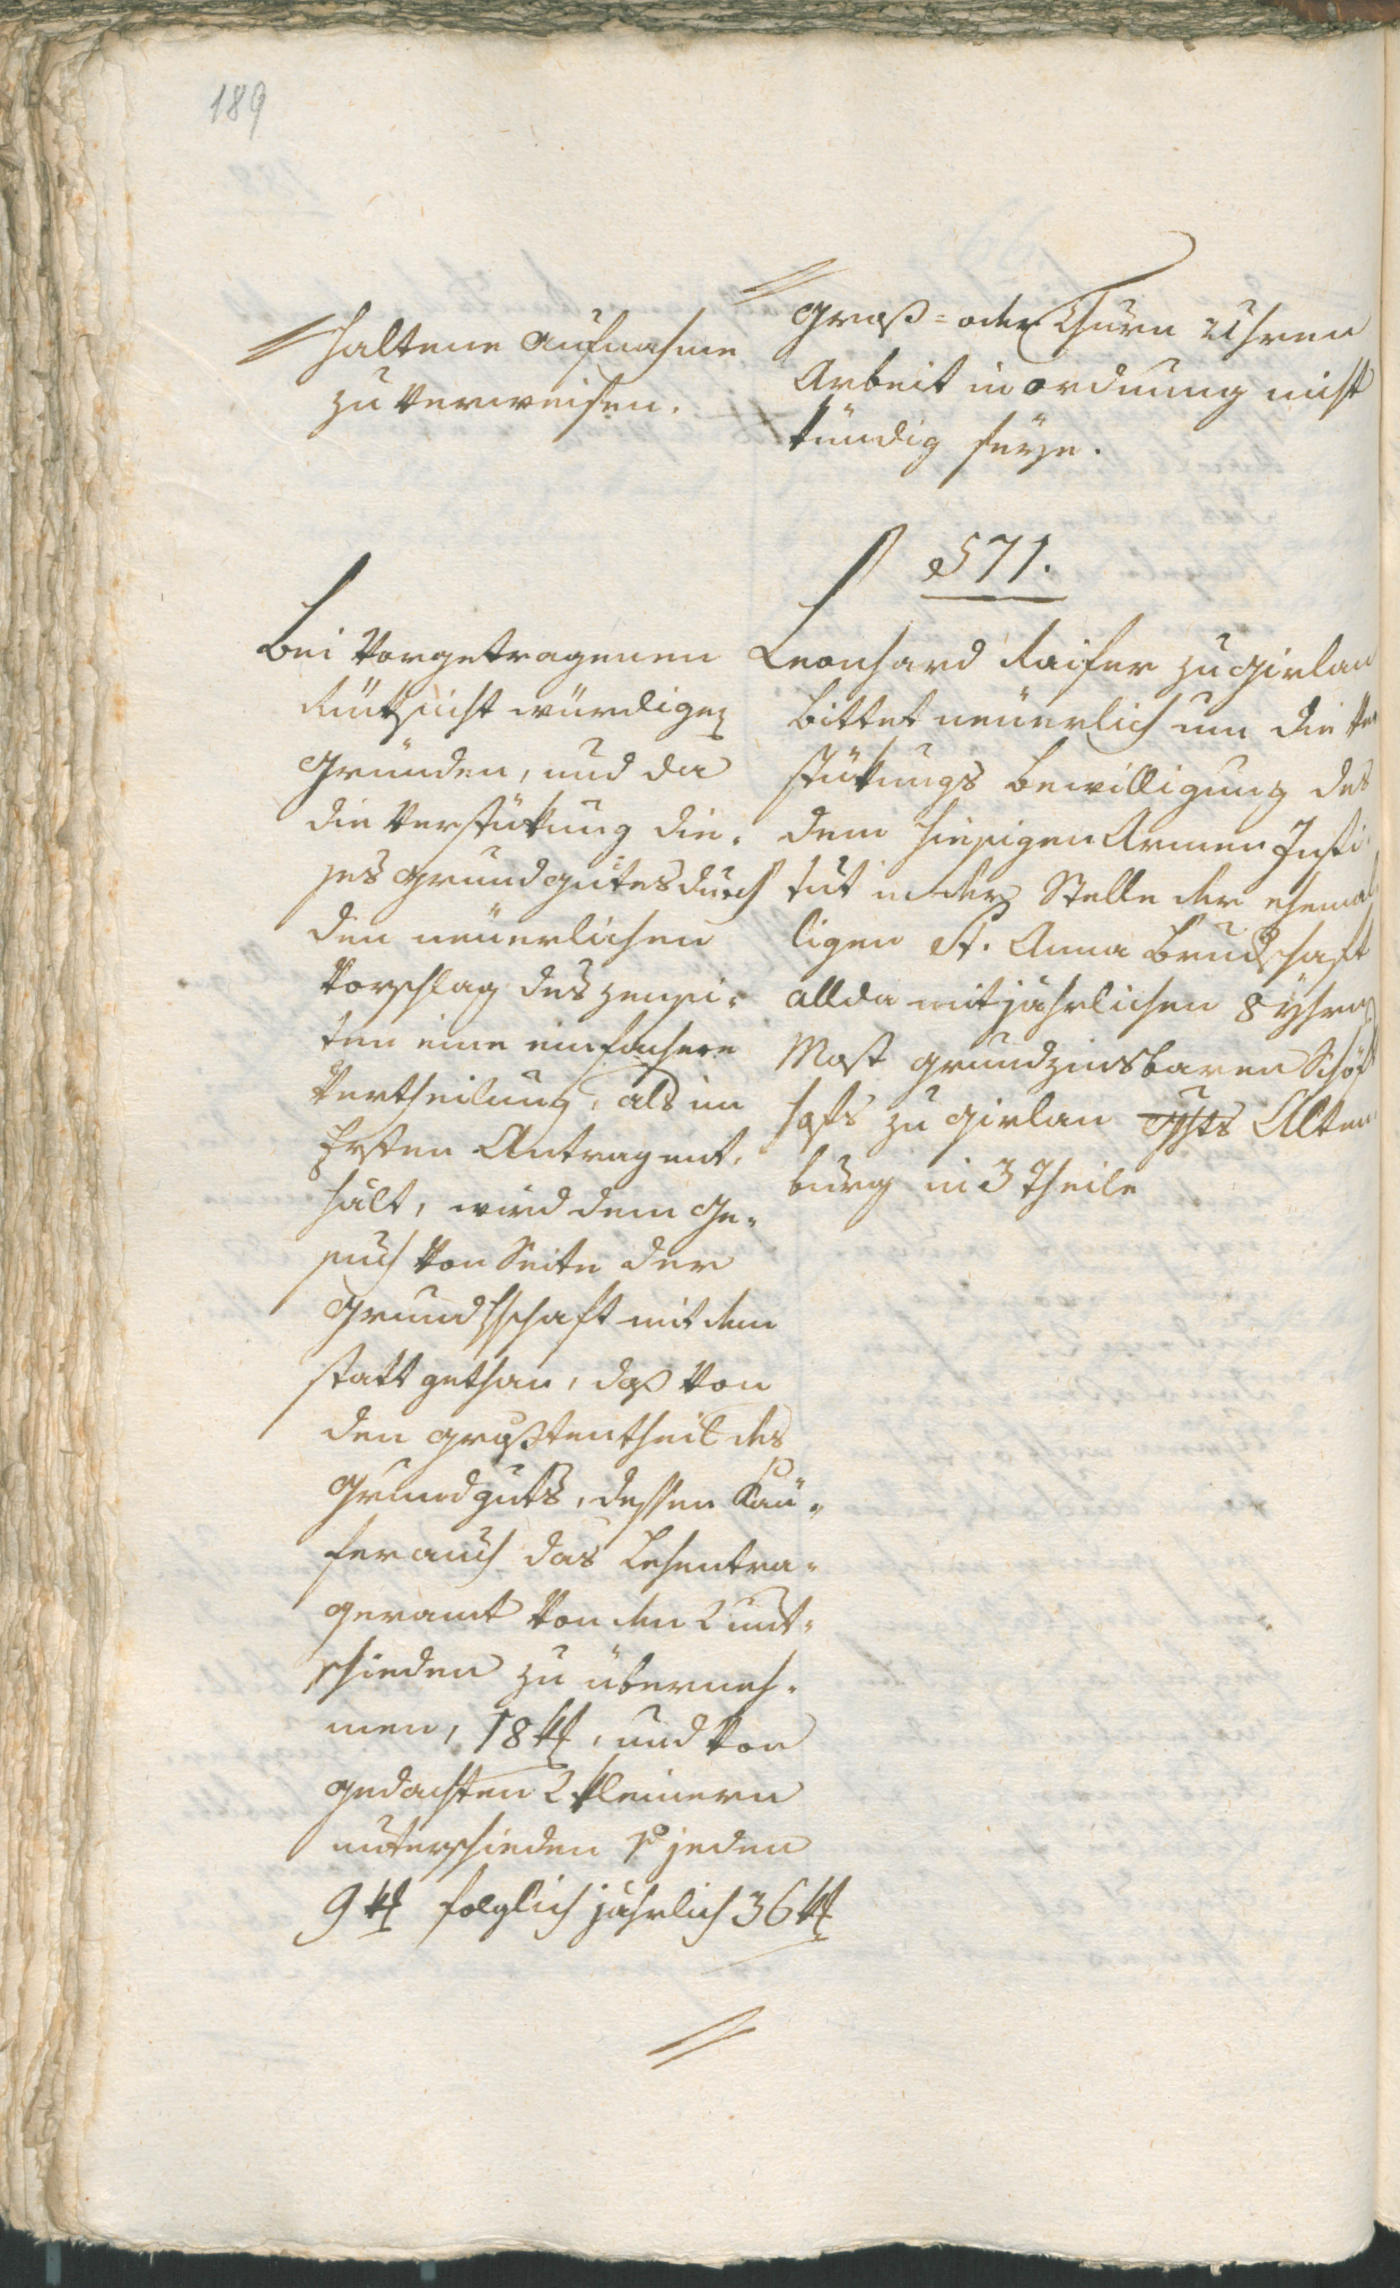 189
haltene Aufnahme
zu verweisen.
Groß- oder Thurn Uhren
Arbeit in ordnung nicht
kündig seÿe.
571.
Bei vorgetragenen
Rüksicht würdigen
Gründen, und da
die Verstükung die-
ses Grundgutes durch
den neuerlichen
Vorschlag des zensi-
ten eine einfachere
Vertheilung, als im
Ersten Antrag ent-
halt, wird dem Ge-
such von Seite der
Grundhschaft mit dem
statt gethan, daß von
den größtentheil des
Grundguts, dessen Kau-
fer auch das Lehentra-
geramt von den 2 unt-
schieden zu überneh-
men, 18 kr, und von
gedachten 2 kleinern
unterschieden pr jeden
9 kr folglich jährlich 36 kr
Leonhard Raifer zu Girlan
bittet neuerlich um die Ver
stükungs bewilligung des
dem hiesigen Armen Insti-
tut in der Stelle der ehema
ligen St. Anna Brudschaft
allda mit jährlichen 8 Yhren
Most grundzinsbaren
hofs zu Girlan Alten
burg in 3 Theile